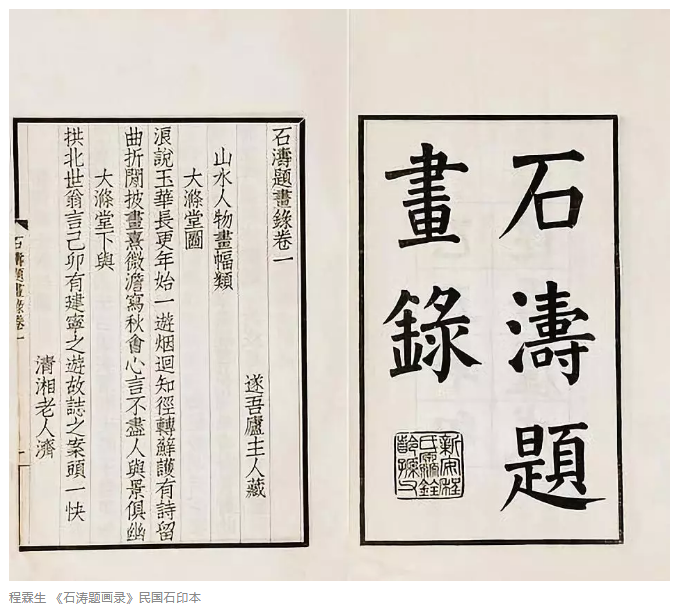 石濤題
畫錄
新安程
氏霖銓
石濤題畫錄卷一
遂吾廬主人藏
山水人物畫幅類
大滌堂圖
浪說玉華長更年始一遊烟迴知徑轉蘚護有詩留
曲折閒披畫熹微澹寫秋會心言不盡人與景俱幽
大滌堂下與
拱北世翁言己卯有建寧之遊故誌之案頭一快
清湘老人濟
石濤題畫錄卷一
程霖生 《石涛题画录》民国石印本